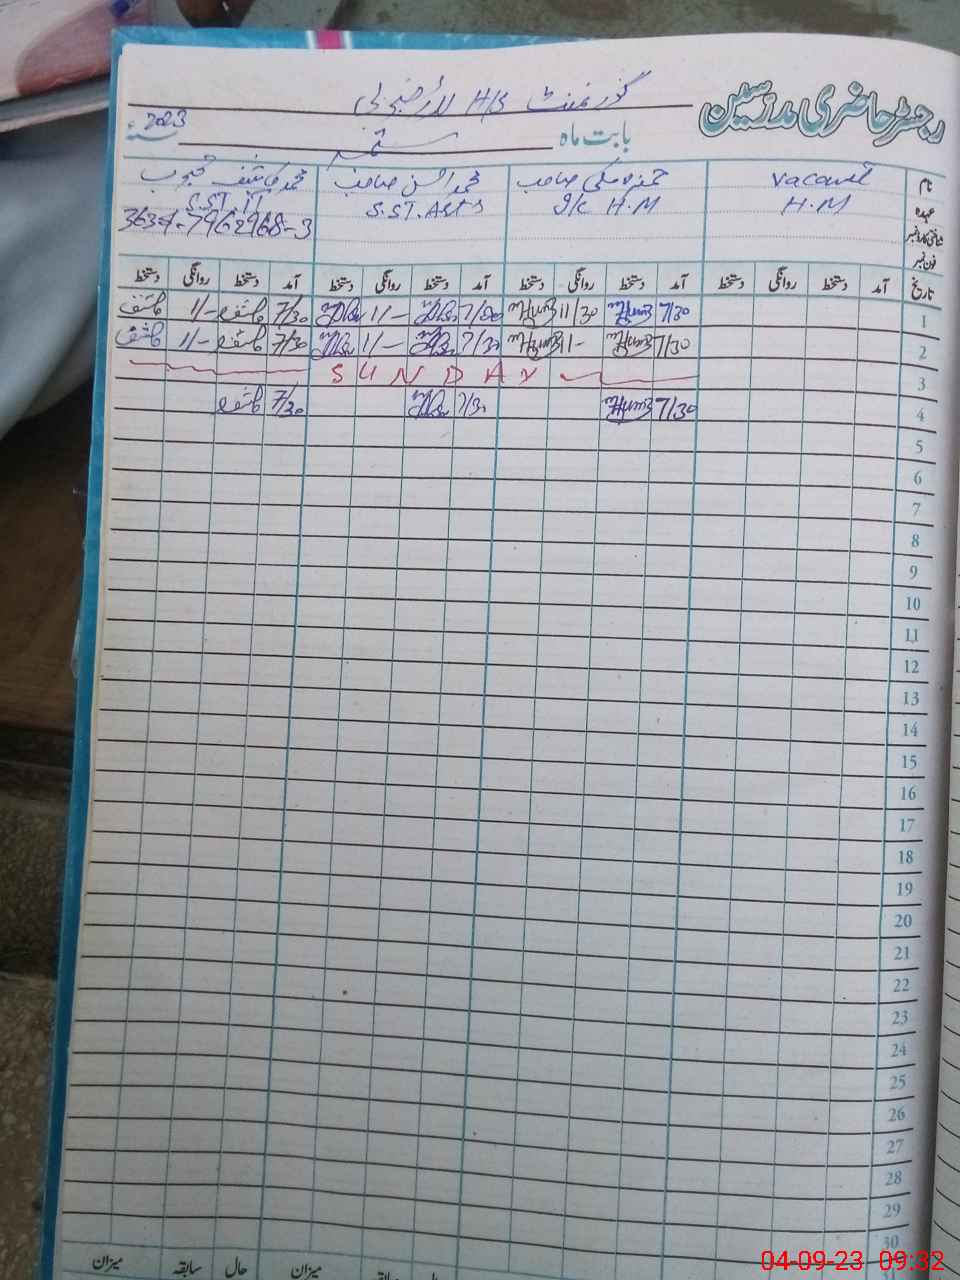 رجسٹر حاضری مدرسین
گورنمنٹ H/S
بابت ماہ ستمبر 2023ء
نام
vacant
حمزہ صاحب
محمد احسن صاحب
محمد کاشف
عہدہ
H.M
I/c H.M
S.ST. Arts
S.ST. IT
شناختی کارڈ نمبر
فون نمبر
تاریخ آمد دستخط روانگی دستخط آمد دستخط روانگی دستخط آمد دستخط روانگی دستخط آمد دستخط روانگی دستخط
1 7/30 11/30 7/30 11/- 7/30 کاشف 11/- کاشف
2 7/30 11/- 7/30 11/- 7/30 کاشف 11/- کاشف
3 SUNDAY
4 7/30 7/30 7/30 کاشف
5
6
7
8
9
10
11
12
13
14
15
16
17
18
19
20
21
22
23
24
25
26
27
28
29
30
میزان حال سابقہ میزان
04-09-23 09:32